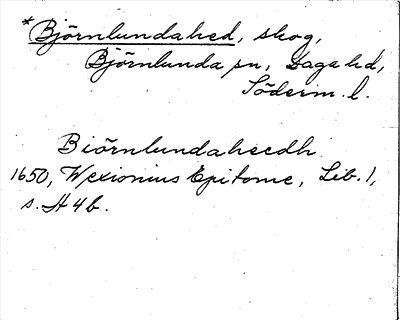 *Björnlundahed, skog,
Björnlunda sn, Daga hd,
Söderm. l.
Biörnlundaheedh
1650, Wexionius Epitome, Lib. 1,
s. H 4 b.